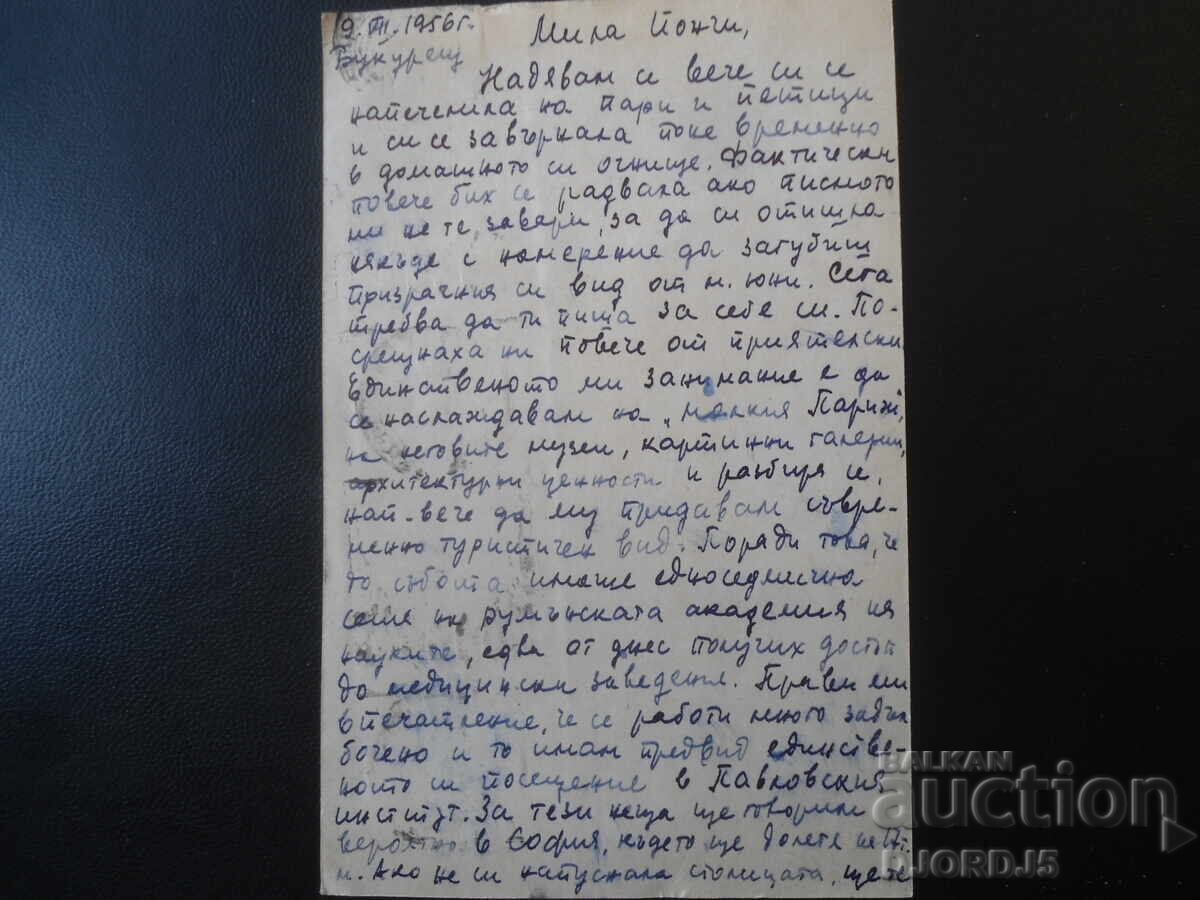 9.VII.1956г.
Мила Понги,
Букурещ
Надявам се вече си се
напеченила на пари и петици
и си се завърнала поне временно
в домашното си огнище. Фактически
повече бих се радвала ако писмото
ми не те завари, за да си отишла
някъде с намерение да загубиш
призрачния си вид от м. юни. Сега
требва да ти пиша за себе си. По-
срещнаха ни повече от приятелски
Единственото ми занимание е да
се наслаждавам на "малкия Париж",
на неговите музеи, картинни галерии,
архитектурни ценности и разбира се,
най-вече да му придавам съвре-
менно туристичен вид. Поради това, че
до събота имаше едноседмична
сесия на румънската академия на
науките, едва от днес получих достъп
до медицински заведения. Прави ми
впечатление, че се работи много задъл
бочено и то имам предвид единстве-
ното си посещение в Павловския
институт. За тези неща ще говорим
вероятно в София, където ще долетя на 17 т.
м. Ако не си напуснала столицата, ще те
BALKAN
auction
DJORDJ5